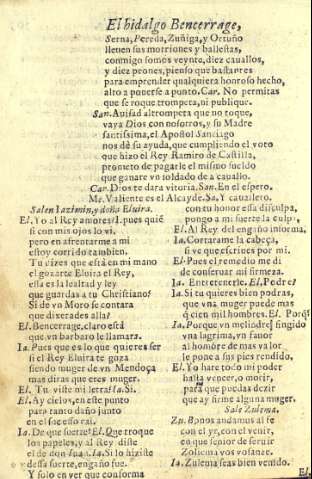 El hidalgo Bencerrage,
Serna, Pereda, Zuñiga, y Ortuño
lleuen sus morriones y ballestas,
conmigo somos veynte, diez cauallos,
y diez peones, pienso que bastantes
para emprender qualquiera honroso hecho,
alto a ponerse a punto. Car. No permitas
que se toque trompeta, ni publique.
San. Auisad al trompeta que no toque,
vaya Dios con nosotros, y su Madre
santissima, el Apostol Santiago
nos dè su ayuda, que cumpliendo el voto
que hizo el Rey Ramiro de Castilla,
prometo de pagarle el mismo sueldo
que ganare vn soldado de a cauallo.
Car. Dios te dara vitoria. San. En el espero.
Me. Valiente es el Alcayde. Sa. Y cauallero.
Salen Iazimin, y doña Eluira.
El. Yo al Rey amores? pues quiẽ
si con mis ojos lo vi,
pero en afrentarme a mi
estoy corrido tambien.
Tu dizes que està en mi mano
el gozarte Eluira el Rey,
esta es la lealtad y ley
que guardas a tu Christiano?
Si de vn Moro se contara
que dixeras alla?
El. Bencerrage, claro està
que vn barbaro le llamara.
Ia. Pues que es lo que quieres ser
si el Rey Eluira te goza
siendo muger de vn Mendoça
mas diras que eres muger.
El. Tu viste mi letra? Ia. Si.
El. Ay cielos, en este punto
tanto daño junto
en el
Ia. De que suerte? El. Que troque
los papeles, y al Rey diste
el de don Iuan. Ia. Si lo hiziste
dessa suerte, engaño fue.
Y solo en ver que conforma
con tu honor essa disculpa,
pongo a mi fuerte la culpa,
El. Al Rey del engaño informa,
Ia. Cortarame la cabeça,
si ve que escriues por mi.
El. Pues el remedio me di
de conseruar mi firmeza.
Ia. Entretenerle. El. Podre?
Ia. Si tu quieres bien podras,
que vna muger puede mas
q̃ cien mil hombres. El. Porq̃?
Ia. Porque vn melindre fingido
vna lagrima, vn fauor
al hombre de mas valor
le pone a sus pies rendido,
El. Yo hare todo mi poder
hasta vencer, o morir,
para que puedas dezir
que ay firme alguna muger.
Sale Zulema.
Zu. Bonos andamos al fe
con el
en que senior de seruir
Zolicima vos
Ia. Zulema seas bien venido.
El.